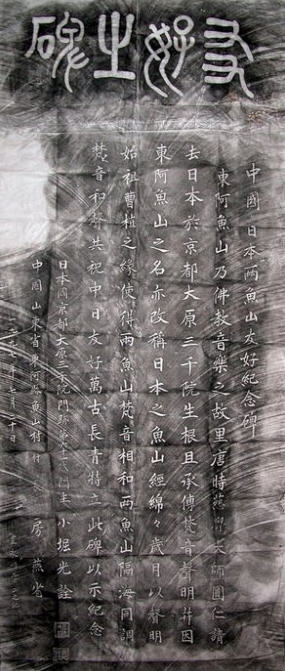 友好之碑
中國 日本兩魚山友好紀念碑
東阿魚山乃佛教音樂之故里唐時慈覺大師圓仁請
去日本於京都大原三千院生根且承傳梵音聲明并因
東阿魚山之名亦改稱日本之魚山經綿々歲月以聲明
始祖曹植之緣使得兩魚山梵音相和兩魚山隔海同調
梵音和聲共祝中日友好萬古長青特立此碑以示紀念
日本國京都大原三千院門跡 主 小堀光詮
中國山東省東阿縣魚山村村 房燕省